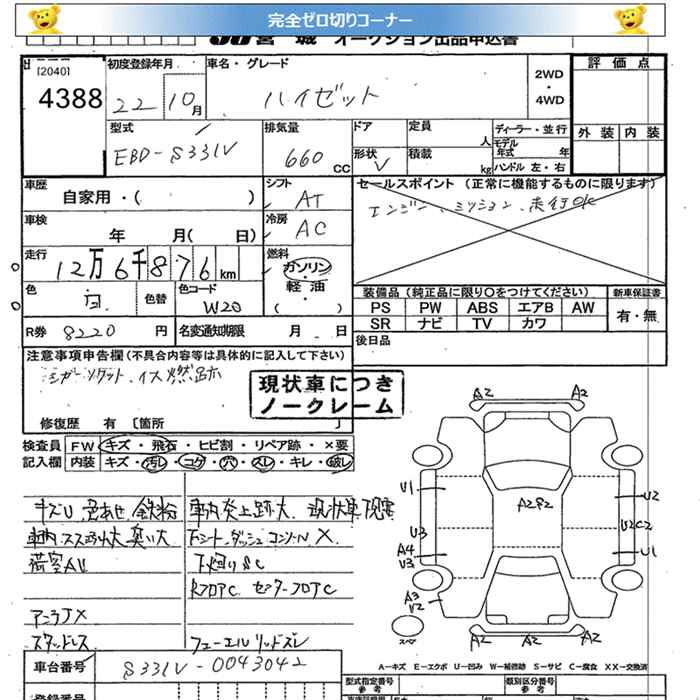 完全ゼロ切りコーナー
JU 宮城 オークション出品申込書
[2040]
4388
初度登録年月
22 10月
車名・グレード
ハイゼット
2WD
・
4WD
評価点
外装 内装
型式
EBD-S331V
排気量
660 cc
ドア
形状
V
定員
人
積載
kg
ディーラー・並行
モデル年式 年
ハンドル 左・右
車歴
自家用・( )
シフト
AT
車検
年 月( 日)
冷房
AC
セールスポイント (正常に機能するものに限ります)
エンジン、ミッション、走行OK
走行
12万6千876km
燃料
ガソリン
・
軽油
( )
色
白
色替
色コード
W20
R券 8220 円
名変通知期限 月 日
装備品(純正品に限り○をつけてください)
PS PW ABS エアB AW
SR ナビ TV カワ
新車保証書
有・無
後日品
注意事項申告欄(不具合内容等は具体的に記入して下さい)
シガーソケット、イス燃跡
現状車につき
ノークレーム
修復歴 有〔箇所 〕
検査員記入欄
FW キズ・飛石・ヒビ割・リペア跡・×要
内装 キズ・汚レ・コゲ・穴・スレ・キレ・破レ
キズU 色あせ 鉄粉
車内炎上跡大 現状車
車内スス汚れ大 臭い大
下廻りSC
RフロアC センターフロアC
アンテナX
スタッドレス
フューエルリッドズレ
A2 A2
U1
U2
A2 P2
U3
U2C2
A4
U3
U1
A3
U2
スペア
A2 A2
A-キズ E-エクボ U-凹み W-補修跡 S-サビ C-腐食 XX-交換済
車台番号
S331V-0043042
型式指定番号
参考
類別区分番号
参考
登録番号